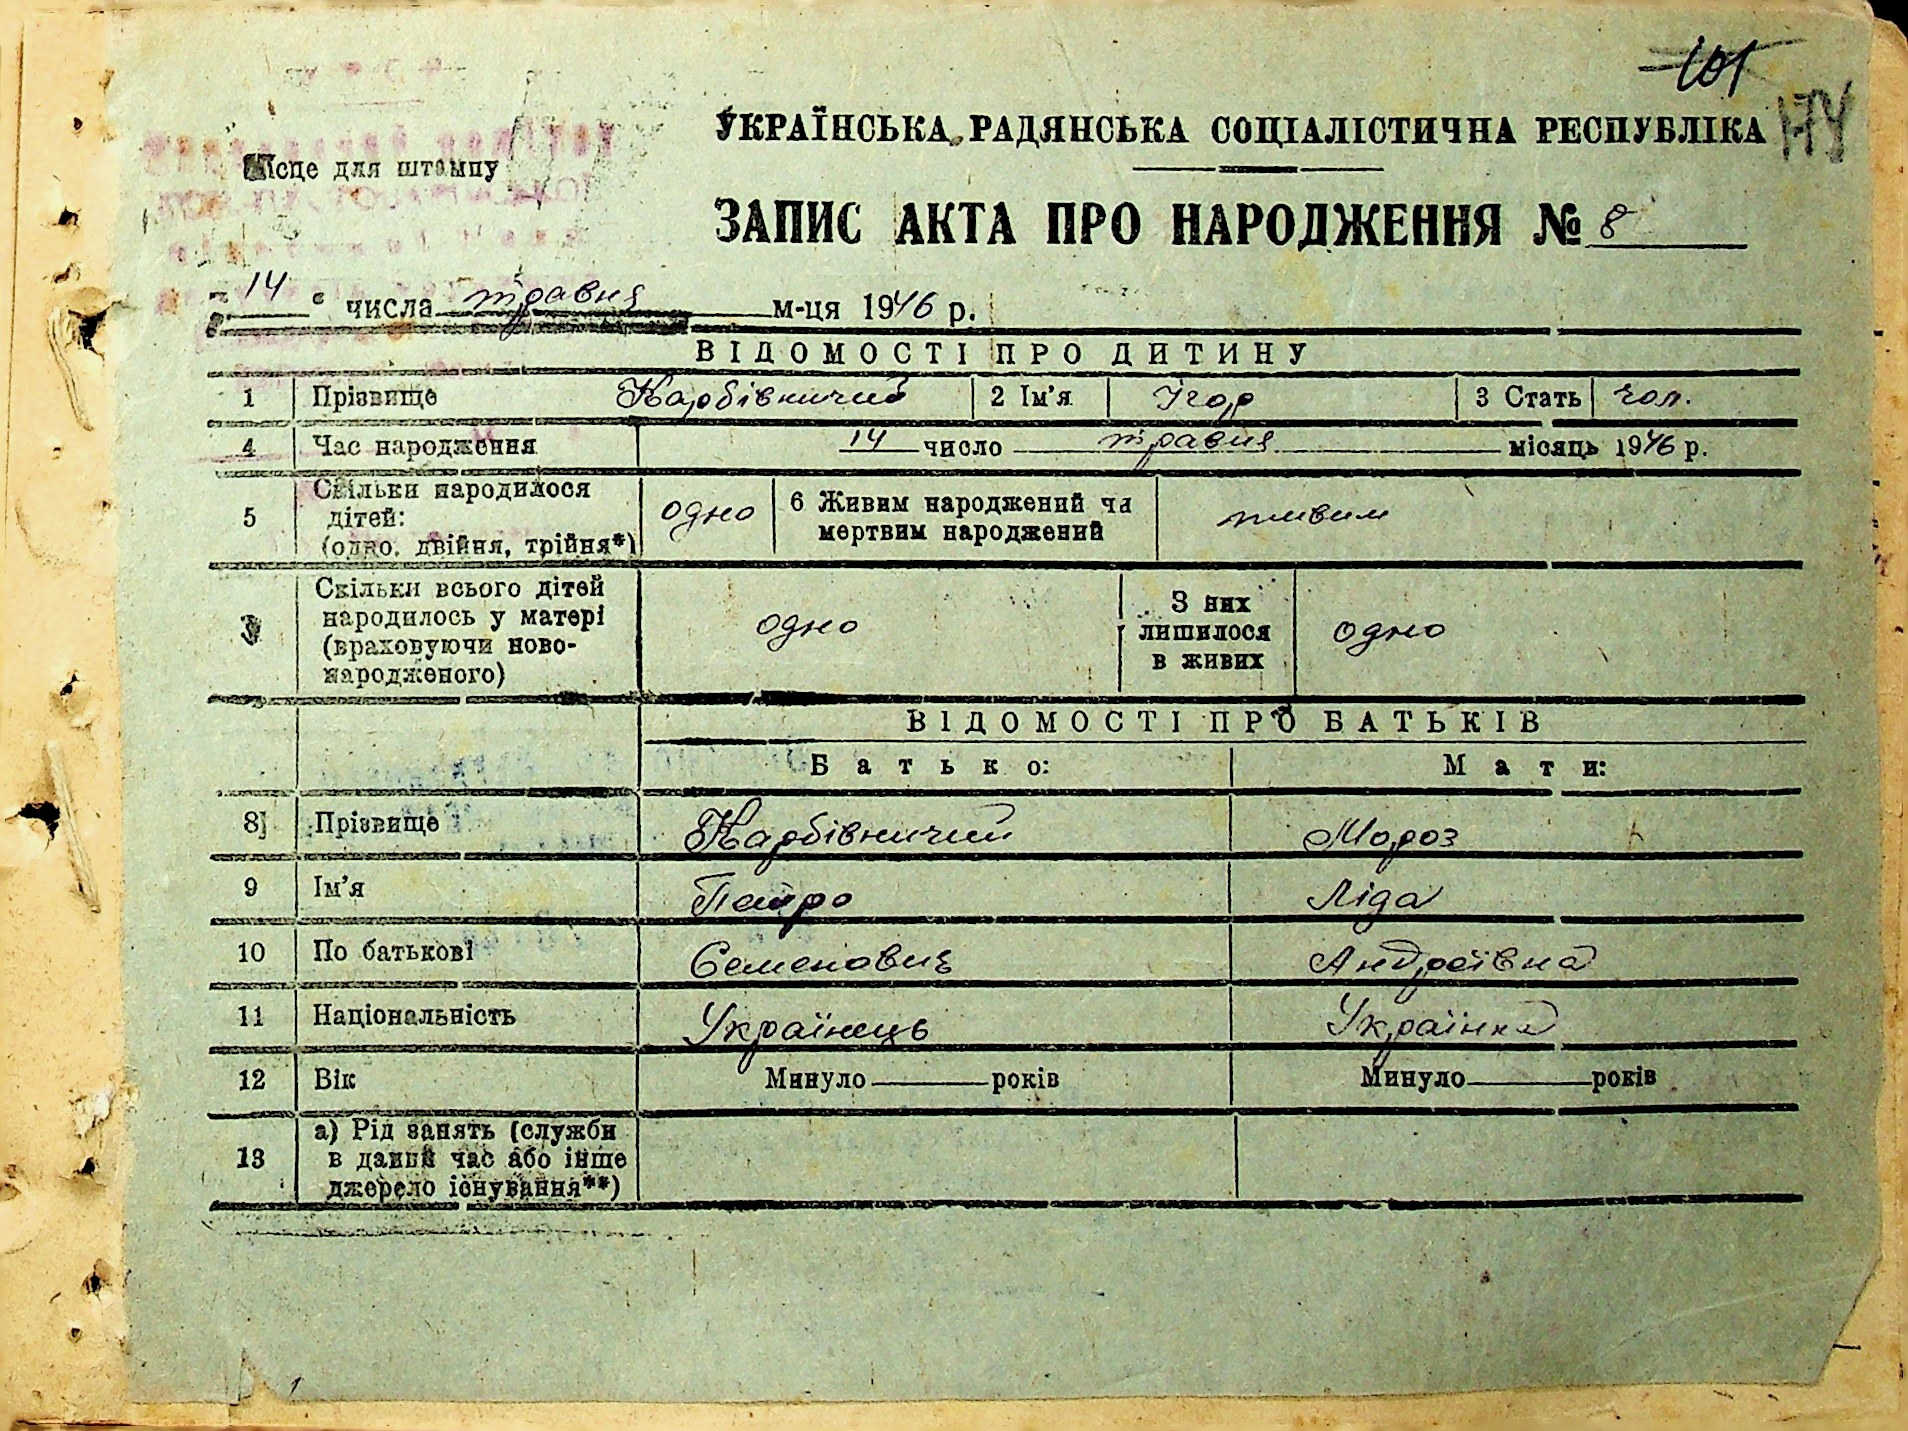 101
174
УКРАЇНСЬКА РАДЯНСЬКА СОЦІАЛІСТИЧНА РЕСПУБЛІКА
Місце для штампу
ЗАПИС АКТА ПРО НАРОДЖЕННЯ № 8
„ 14 “ числа травня м-ця 1946 р.
ВІДОМОСТІ ПРО ДИТИНУ
1 Прізвище Карбівничий 2 Ім'я Ігор 3 Стать чол.
4 Час народження 14 число травня місяць 1946 р.
5 Скільки народилося дітей: (одно, двійня, трійня*) одно 6 Живим народжений чи мертвим народжений живим
Скільки всього дітей народилось у матері (враховуючи новонародженого) одно З них лишилося в живих одно
ВІДОМОСТІ ПРО БАТЬКІВ
Батько: Мати:
8 Прізвище Карбівничий Мороз
9 Ім'я Петро Ліда
10 По батькові Семенович Андреївна
11 Національність Українець Українка
12 Вік Минуло років Минуло років
13 а) Рід занять (служби в даний час або інше джерело існування**)